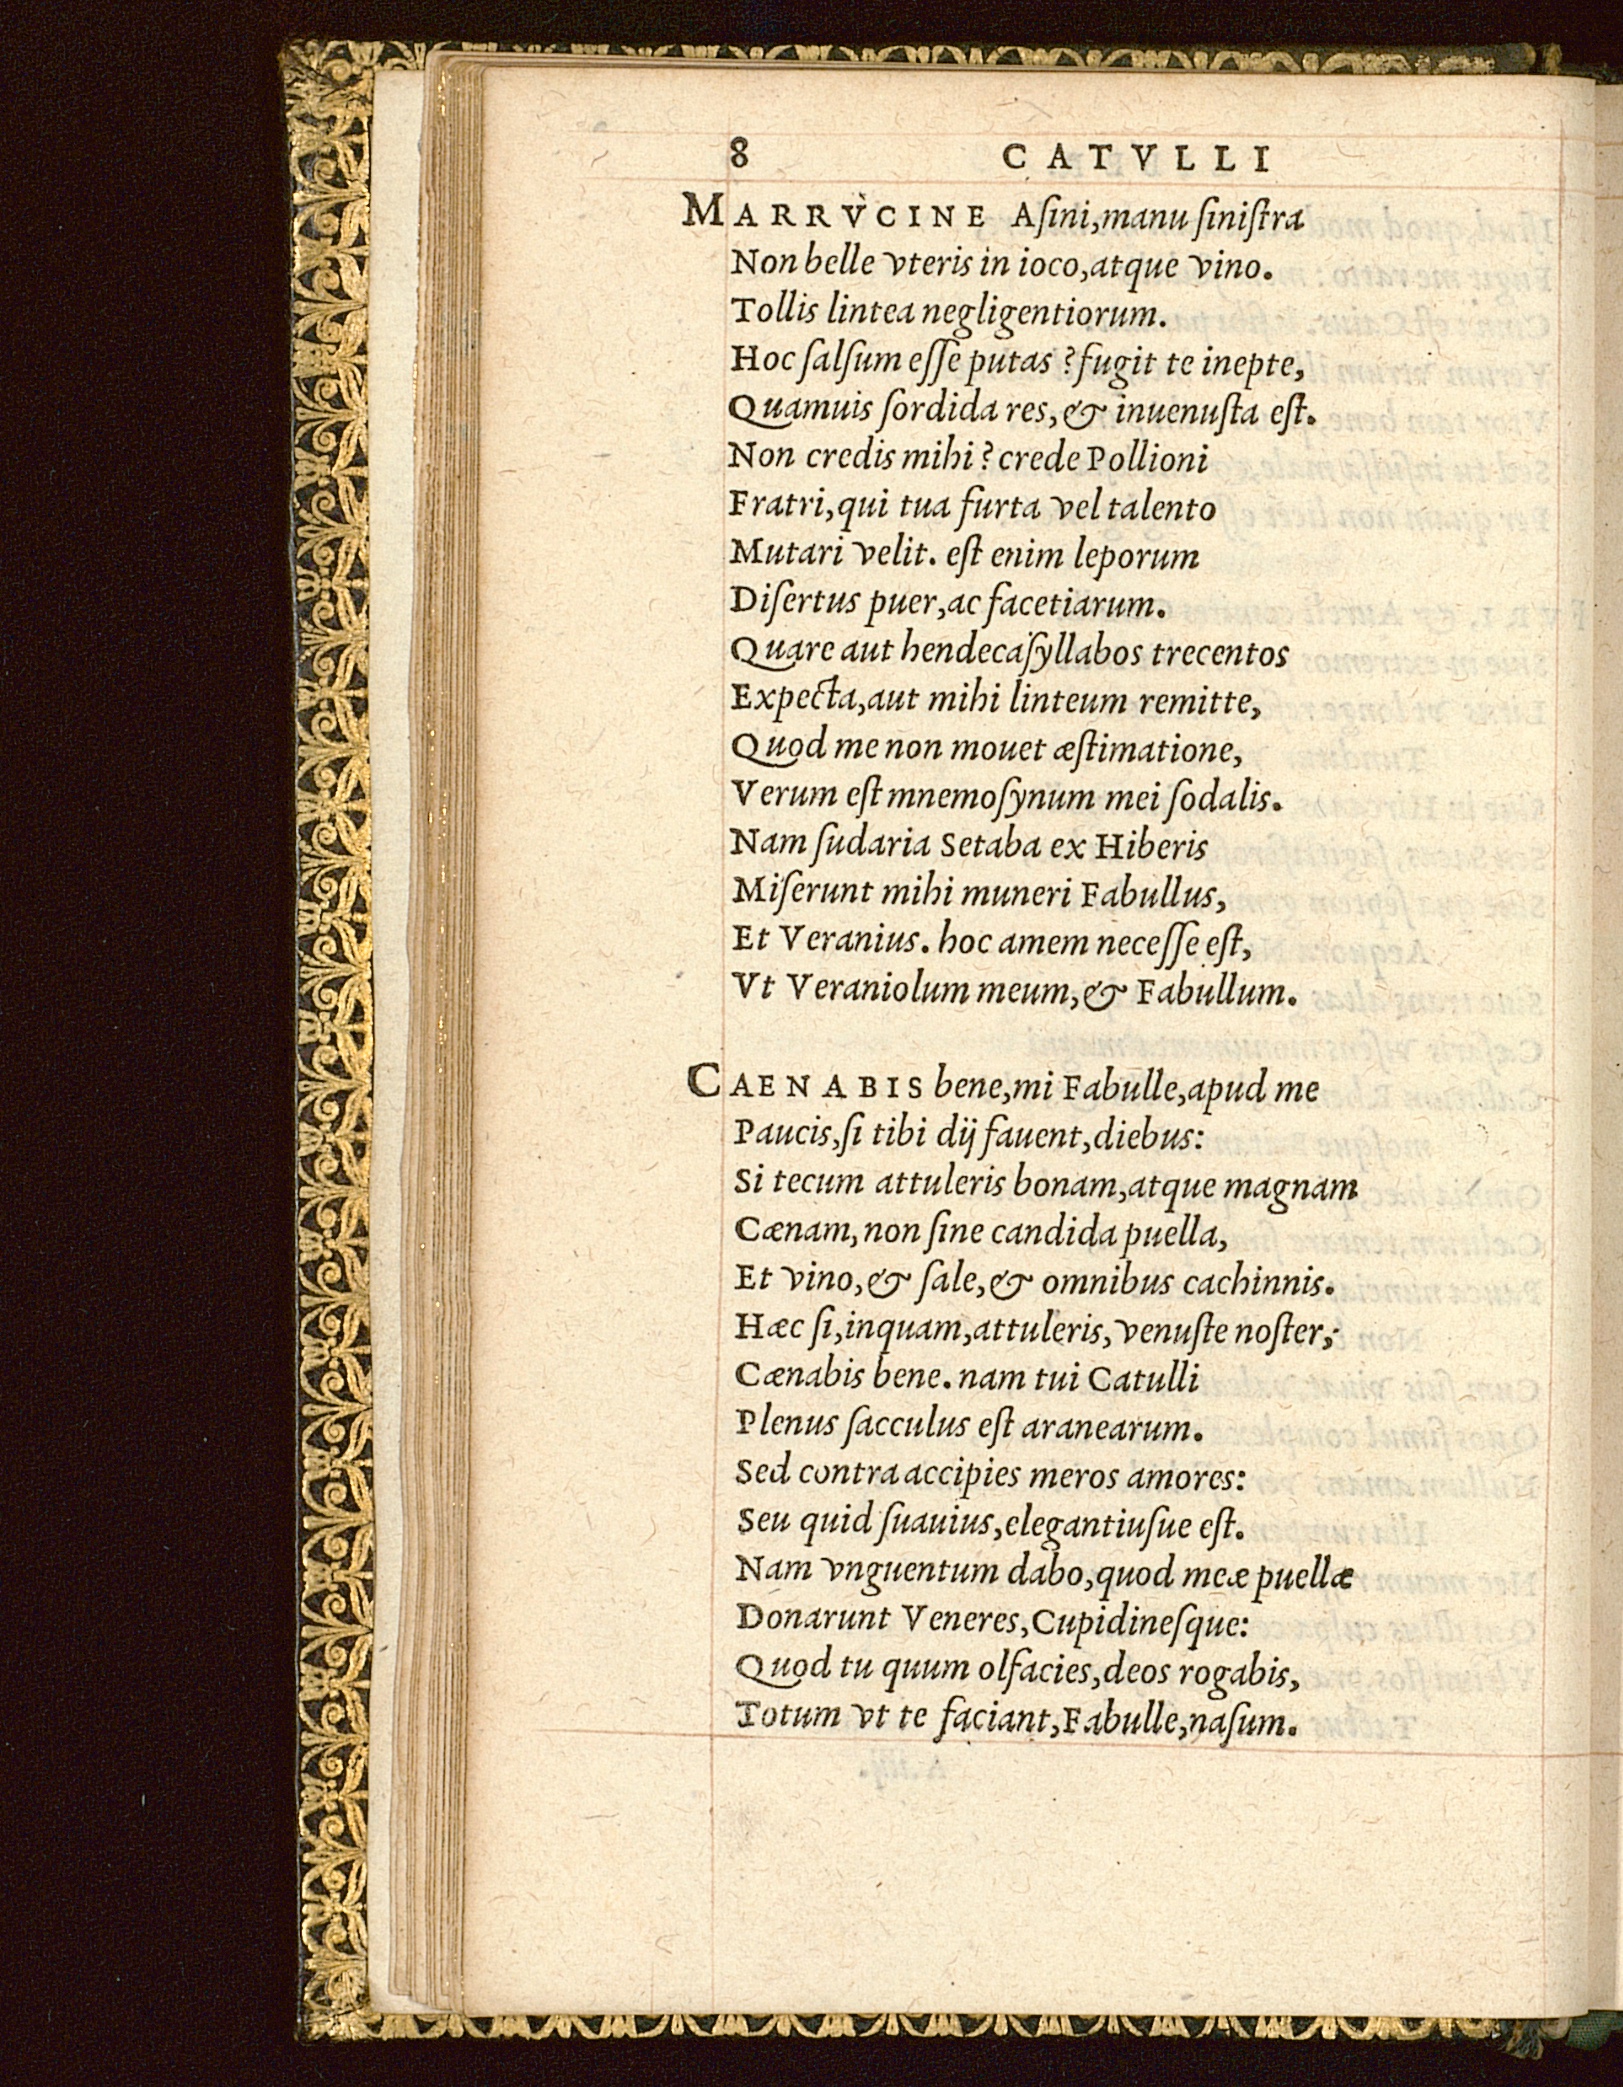 8 CATVLLI
MARRVCINE Aſini, manu ſiniſtra
Non belle vteris in ioco, atque vino.
Tollis lintea negligentiorum.
Hoc ſalſum eſſe putas? fugit te inepte,
Quamuis ſordida res, & inuenuſta eſt.
Non credis mihi? crede Pollioni
Fratri, qui tua furta vel talento
Mutari velit. eſt enim leporum
Diſertus puer, ac facetiarum.
Quare aut hendecaſyllabos trecentos
Expecta, aut mihi linteum remitte,
Quod me non mouet æſtimatione,
Verum eſt mnemoſynum mei ſodalis.
Nam ſudaria Setaba ex Hiberis
Miſerunt mihi muneri Fabullus,
Et Veranius. hoc amem neceſſe eſt,
Vt Veraniolum meum, & Fabullum.
CAENABIS bene, mi Fabulle, apud me
Paucis, ſi tibi dij fauent, diebus:
Si tecum attuleris bonam, atque magnam
Cænam, non ſine candida puella,
Et vino, & ſale, & omnibus cachinnis.
Hæc ſi, inquam, attuleris, venuſte noſter,
Cænabis bene. nam tui Catulli
Plenus ſacculus eſt aranearum.
Sed contra accipies meros amores:
Seu quid ſuauius, elegantiuſue eſt.
Nam vnguentum dabo, quod meæ puellæ
Donarunt Veneres, Cupidineſque:
Quod tu quum olfacies, deos rogabis,
Totum vt te faciant, Fabulle, naſum.